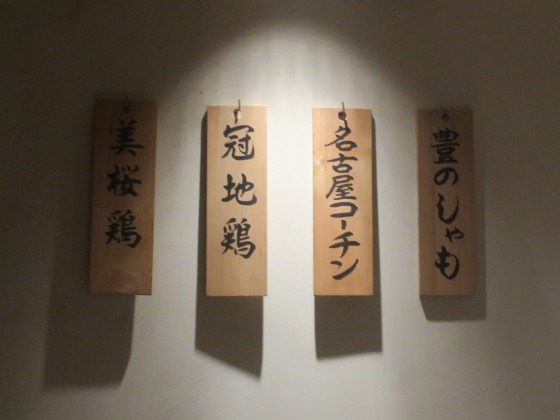 豊のしゃも
名古屋コーチン
冠地鶏
美桜鶏